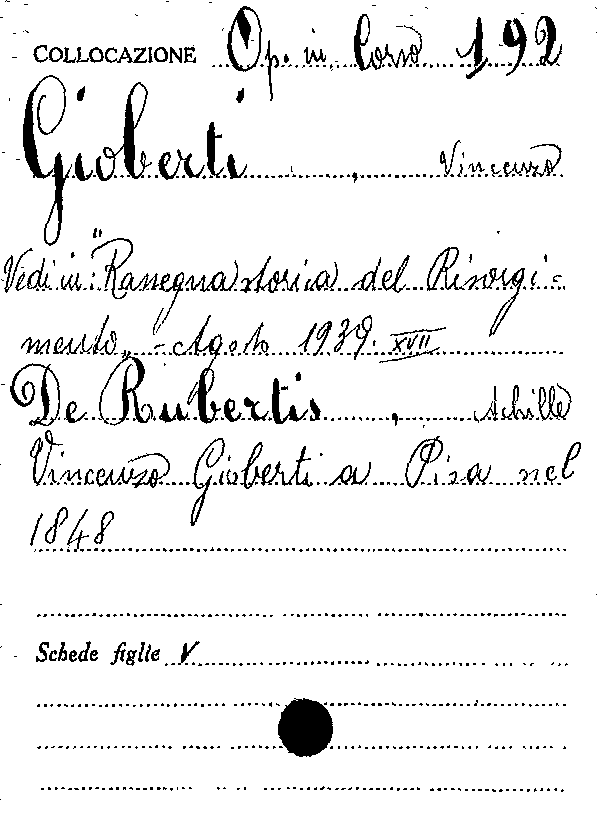 COLLOCAZIONE Op. in Corso 192
Gioberti, Vincenzo
Vedi in: "Rassegna storica del Risorgi=
mento" - Agosto 1939. XVII
De Rubertis, Achille
Vincenzo Gioberti a Pisa nel
1848
Schede figlie V